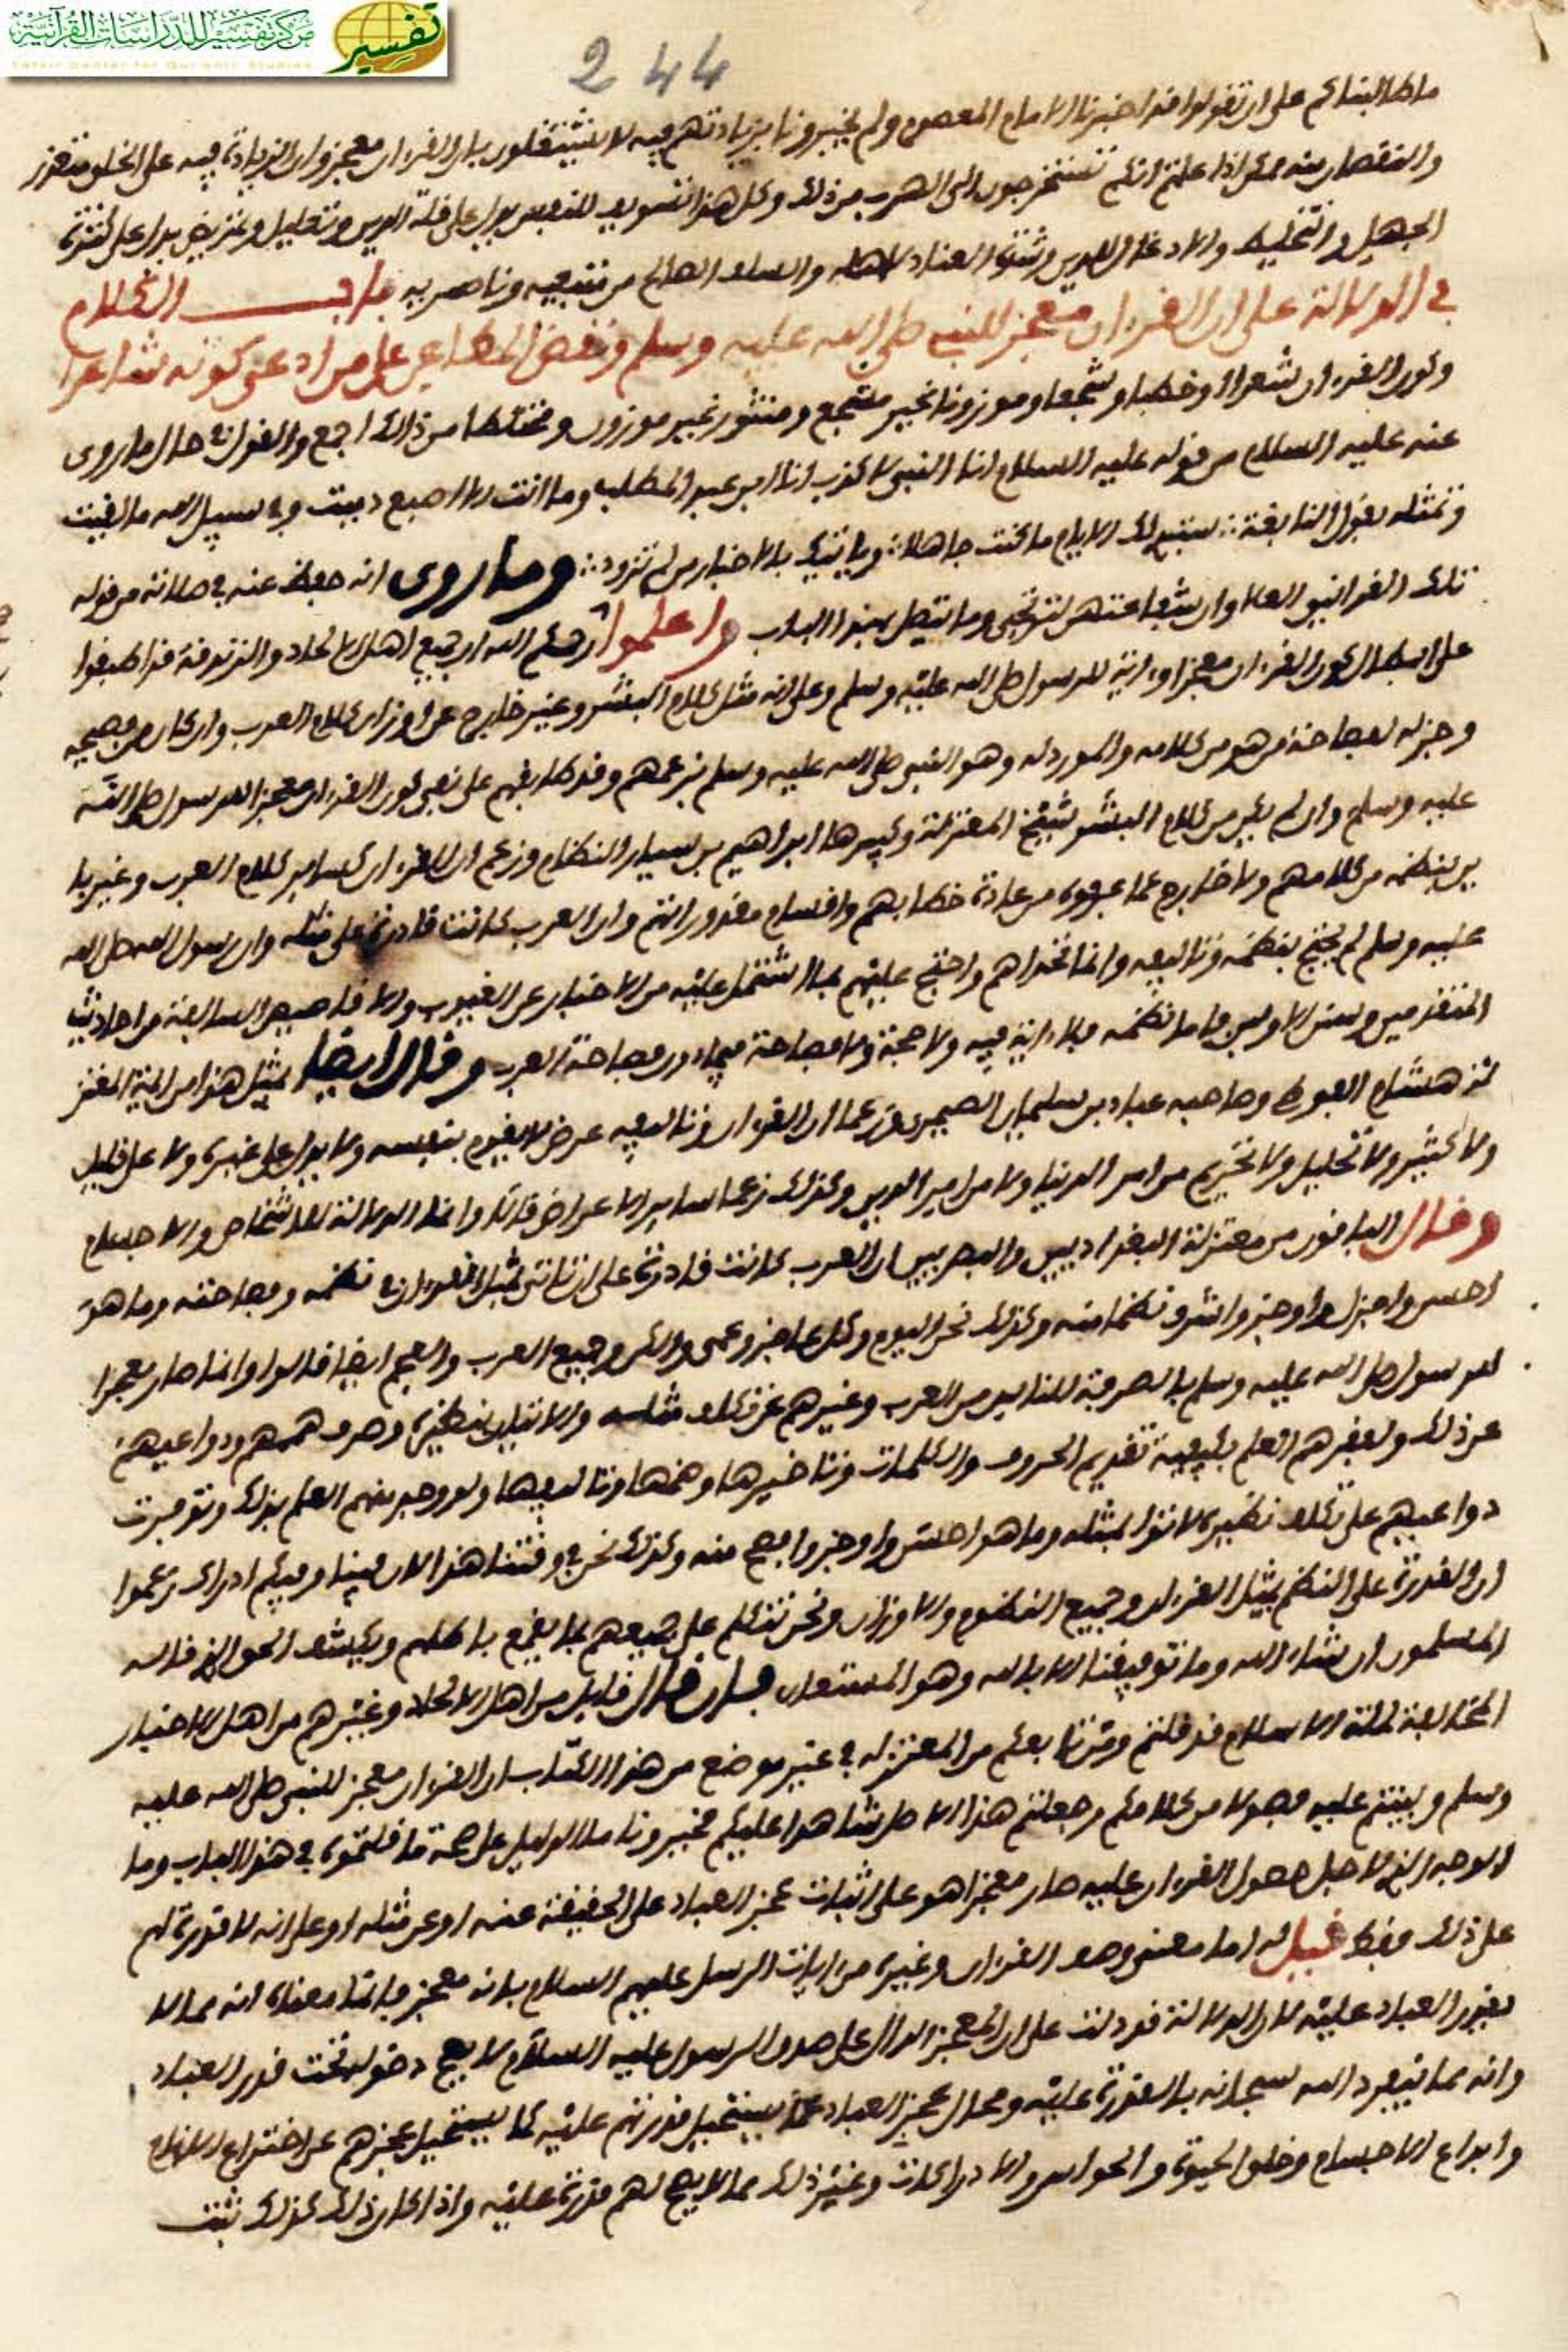 تفسير
مركز تفسير للدراسات القرآنية
Tafsir Center for Qur'anic Studies
244
ما طالبناكم على ان تقولوا قد اخبرنا الامام المعصوم ولم يخبرونا بزيادتهم فيه لا تشتغلون بان القرءان معجز وان الزيادة فيه على الخلق متعذر
والنقصان منه ممكن اذا علمتم انكم تستخرجون الى الهرب من ذلك وكل هذا تسويف للنفس يدل على قلة الدين وتعليل وتمريض يدل على كثرة
الجهل والتخليط والادغال للدين وشدة العناد لاهله والسلف الصالح من متبعيه وناصريه باب الكلام
في الدلالة على ان القرءان معجز للنبي صلى الله عليه وسلم ونقض المطاعن على من ادعى كونه شاعرا
وكون القرءان شعرا او خطبا وشجعا وموزونا غير مشجع ومنثور غير موزون ومختلطا من ذلك اجمع والقول في حال ما روى
عنه عليه السلام من قوله عليه السلام انا النبي لا كذب انا ابن عبد المطلب وما انت الا اصبع دميت وفي سبيل الله ما لقيت
وتمثله بقول النابغة ستبدي لك الايام ما كنت جاهلا ويأتيك بالاخبار من لم تزود وما روى انه حفظ عنه في صلاته من قوله
تلك الغرانيق العلا وان شفاعتهن لترتجى وما يتصل بهذا الباب واعلموا رحمكم الله ان جميع اهل الالحاد والزندقة قد اطبقوا
على ابطال كون القرءان معجزا واية للرسول صلى الله عليه وسلم وعلى انه مثل كلام البشر وغير خارج عن اوزان كلام العرب وان كان من فصيحه
وجزله لفصاحة من هو من كلامه والمورد له وهو النبي صلى الله عليه وسلم بزعمهم وقد طابقهم على نفي كون القرءان معجز للرسول صلى الله
عليه وسلم وان لم يكن من كلام البشر شيخ المعتزلة وكبيرها ابراهيم بن سيار النظام وزعم ان القرءان كساير كلام العرب وغير با
ين بنظمه من كلامهم ولا خارج عما عرفوه من عادة خطابهم واقسام مقدوراتهم وان العرب كانت قادرة على مثله وان رسول الله صلى الله
عليه وسلم لم يحتج بنظمه وتاليفه وانما تحداهم واحتج عليهم بما اشتمل عليه من الاخبار عن الغيوب والاقاصيص السالفة من احاديث
المتقدمين وسنن الاولين فاما نظمه فلا اية فيه ولا حجة ولا فصاحة فيما دون فصاحة العرب وقال ايضا بمثل هذا من ايمة المعتز
لة هشام الفوطي وصاحبه عباد بن سليمان الصيمري وزعما ان القرءان وتاليفه عرض لا يقوم بنفسه ولا يدل على غيره ولا على قليل
ولا كثير ولا تحليل ولا تحريم من امر الدنيا ولا من امر الدين وكذلك زعما ساير الاعراض قالا وانما الدلالة للاشخاص والاجسام
وقال الباقون من معتزلة البغداديين والبصريين ان العرب كانت قادرة على ان تاتي بمثل القرءان في نظمه وفصاحته وما هو
احسن واجزل واوجز واشرف نظما منه وكذلك نحن اليوم وكل عاجز وعمي والكن وجميع العرب والعجم ايضا قالوا وانما صار معجزا
للرسول صلى الله عليه وسلم بالصرفة للناس من العرب وغيرهم عن تكلف مثله والاتيان بنظيره وصرف هممهم ودواعيهم
عن ذلك ولفقدهم العلم بكيفية تقديم الحروف والكلمات وتاخيرها وضمها وتاليفها ولو وجد منهم العلم بذلك وتوفرت
دواعيهم على تكلف نظيره لاتوا بمثله وما هو احسن واوجز وافصح منه وكذلك نحن في وقتنا هذا لان فينا وفيكم ادراك زعموا
ان القدرة على النظم بمثل القرءان وجميع النظوم والاوزان ونحن نتكلم على جميعهم بما يقمع باطلهم ويكشف الحق الذي قاله
المسلمون ان شاء الله وما توفيقنا الا بالله وهو المستعان فان قال قايل من اهل الالحاد وغيرهم من اهل الاخبار
المخالفة لملة الاسلام قد قلتم ومن تابعكم من المعتزلة في غير موضع من هذا الكتاب ان القرءان معجز للنبي صلى الله عليه
وسلم وبنيتم عليه فصولا من كلامكم وجعلتم هذا الاصل شاهدا عليكم فخبرونا ما الدليل على صحة ما قلتموه في هذا الباب وما
الوجه الذي لاجل حصول القرءان عليه صار معجزا هو على اثبات عجز العباد على الحقيقة عنه او عن مثله او على انه لا قدرة لهم
على ذلك فقط قيل له اما معنى وصف القرءان وغيره من ايات الرسل عليهم السلام بانه معجز فانما معناه انه مما لا
يقدر العباد عليه لان الدلالة قد دلت على ان المعجز الدال على صدق الرسول عليه السلام لا يصح دخوله تحت قدر العباد
وانه مما ينفرد الله سبحانه بالقدرة عليه ومحال عجز العباد عما يستحيل قدرتهم عليه كما يستحيل عجزهم عن اختراع
وابداع الاجسام وخلق الحيوة والحواس والادراكات وغير ذلك مما لا يصح لهم قدرة عليه واذا كان ذلك كذلك ثبت